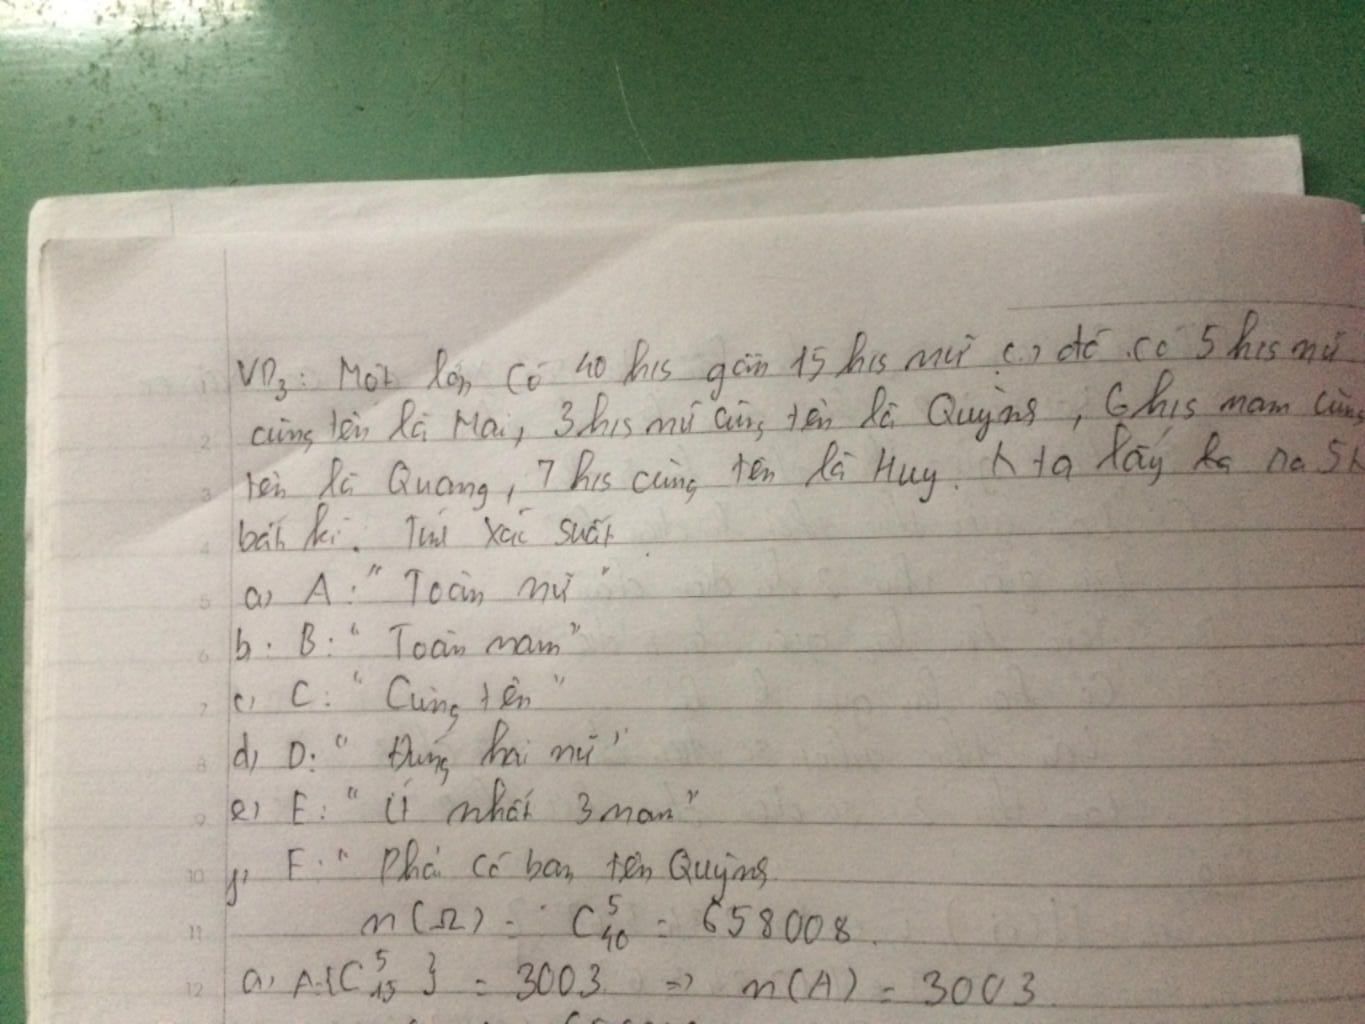 VD₃: Một lớp có 40 h/s gồm 15 h/s nữ (.) đó có 5 h/s nữ
cùng tên là Mai, 3 h/s nữ cùng tên là Quỳnh, 6 h/s nam cùng
tên là Quang, 7 h/s cùng tên là Huy. ta lấy ra 5 h
bất kì. Tính xác suất
a, A: "Toàn nữ"
b. B: "Toàn nam"
c, C: "Cùng tên"
d, D: "Đúng hai nữ"
e, E: "Ít nhất 3 nam"
f, F: "Phải có bạn tên Quỳnh
n(Ω) = C⁵₄₀ = 658008.
a, A={C⁵₁₅} = 3003. => n(A) = 3003.